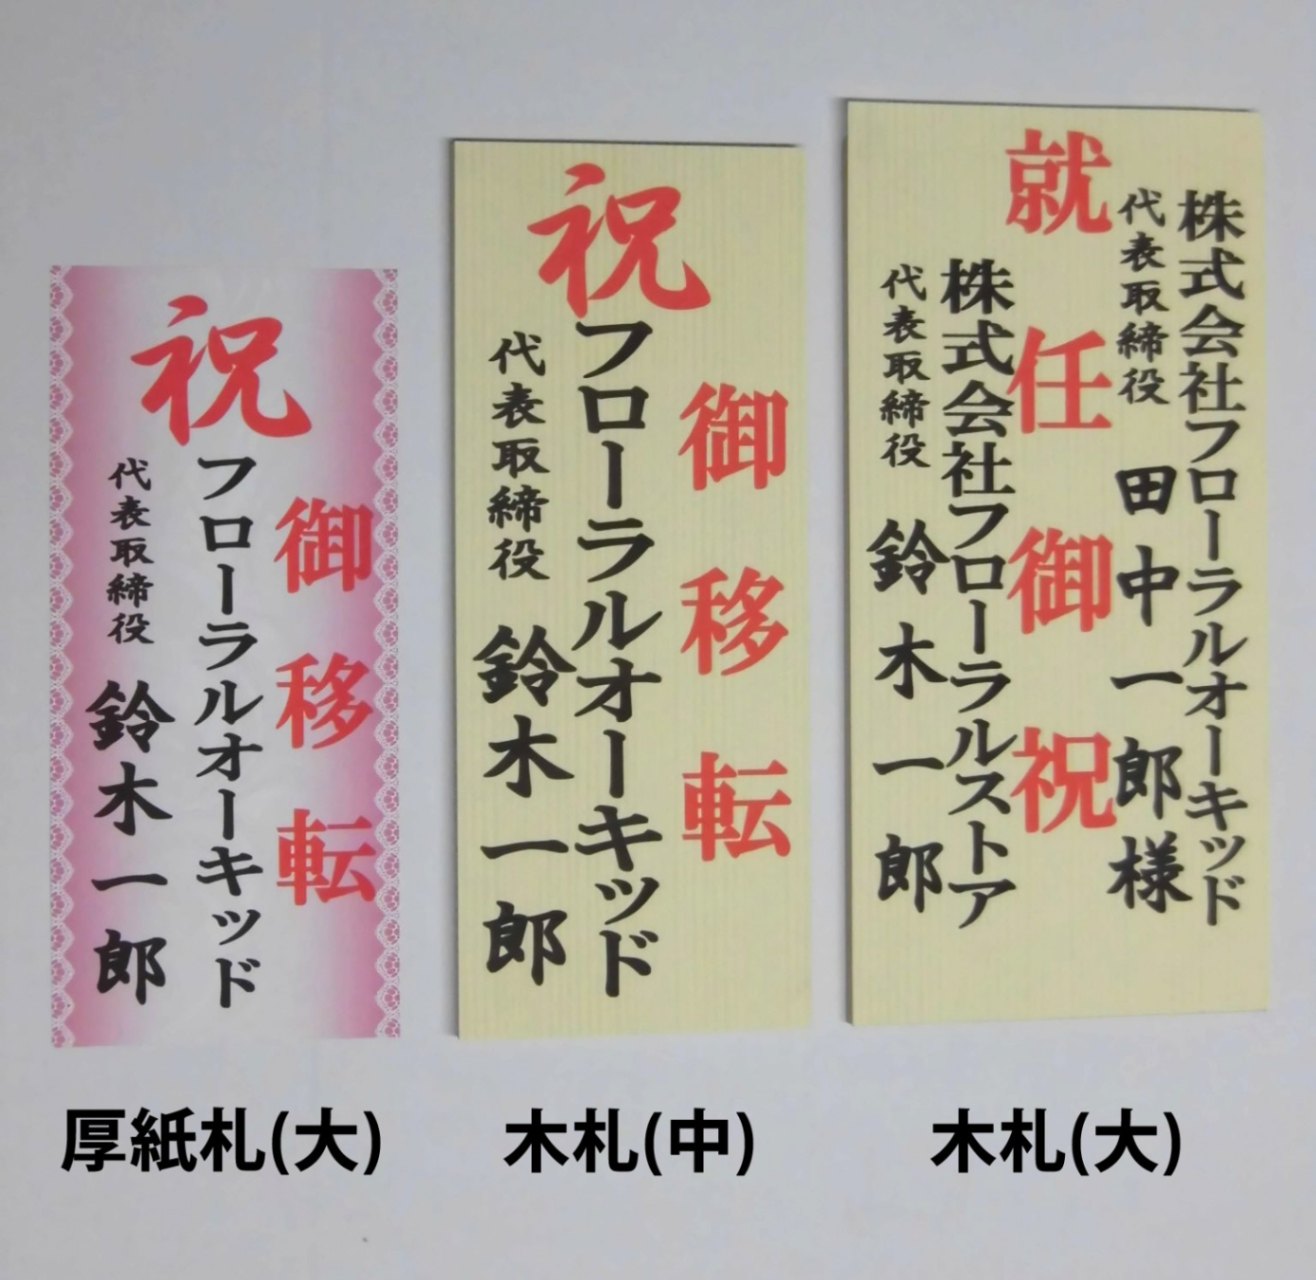 祝
御移転
フローラルオーキッド
代表取締役 鈴木一郎
厚紙札(大)
祝
御移転
フローラルオーキッド
代表取締役 鈴木一郎
木札(中)
株式会社フローラルオーキッド
代表取締役 田中一郎様
就任御祝
株式会社フローラルストア
代表取締役 鈴木一郎
木札(大)